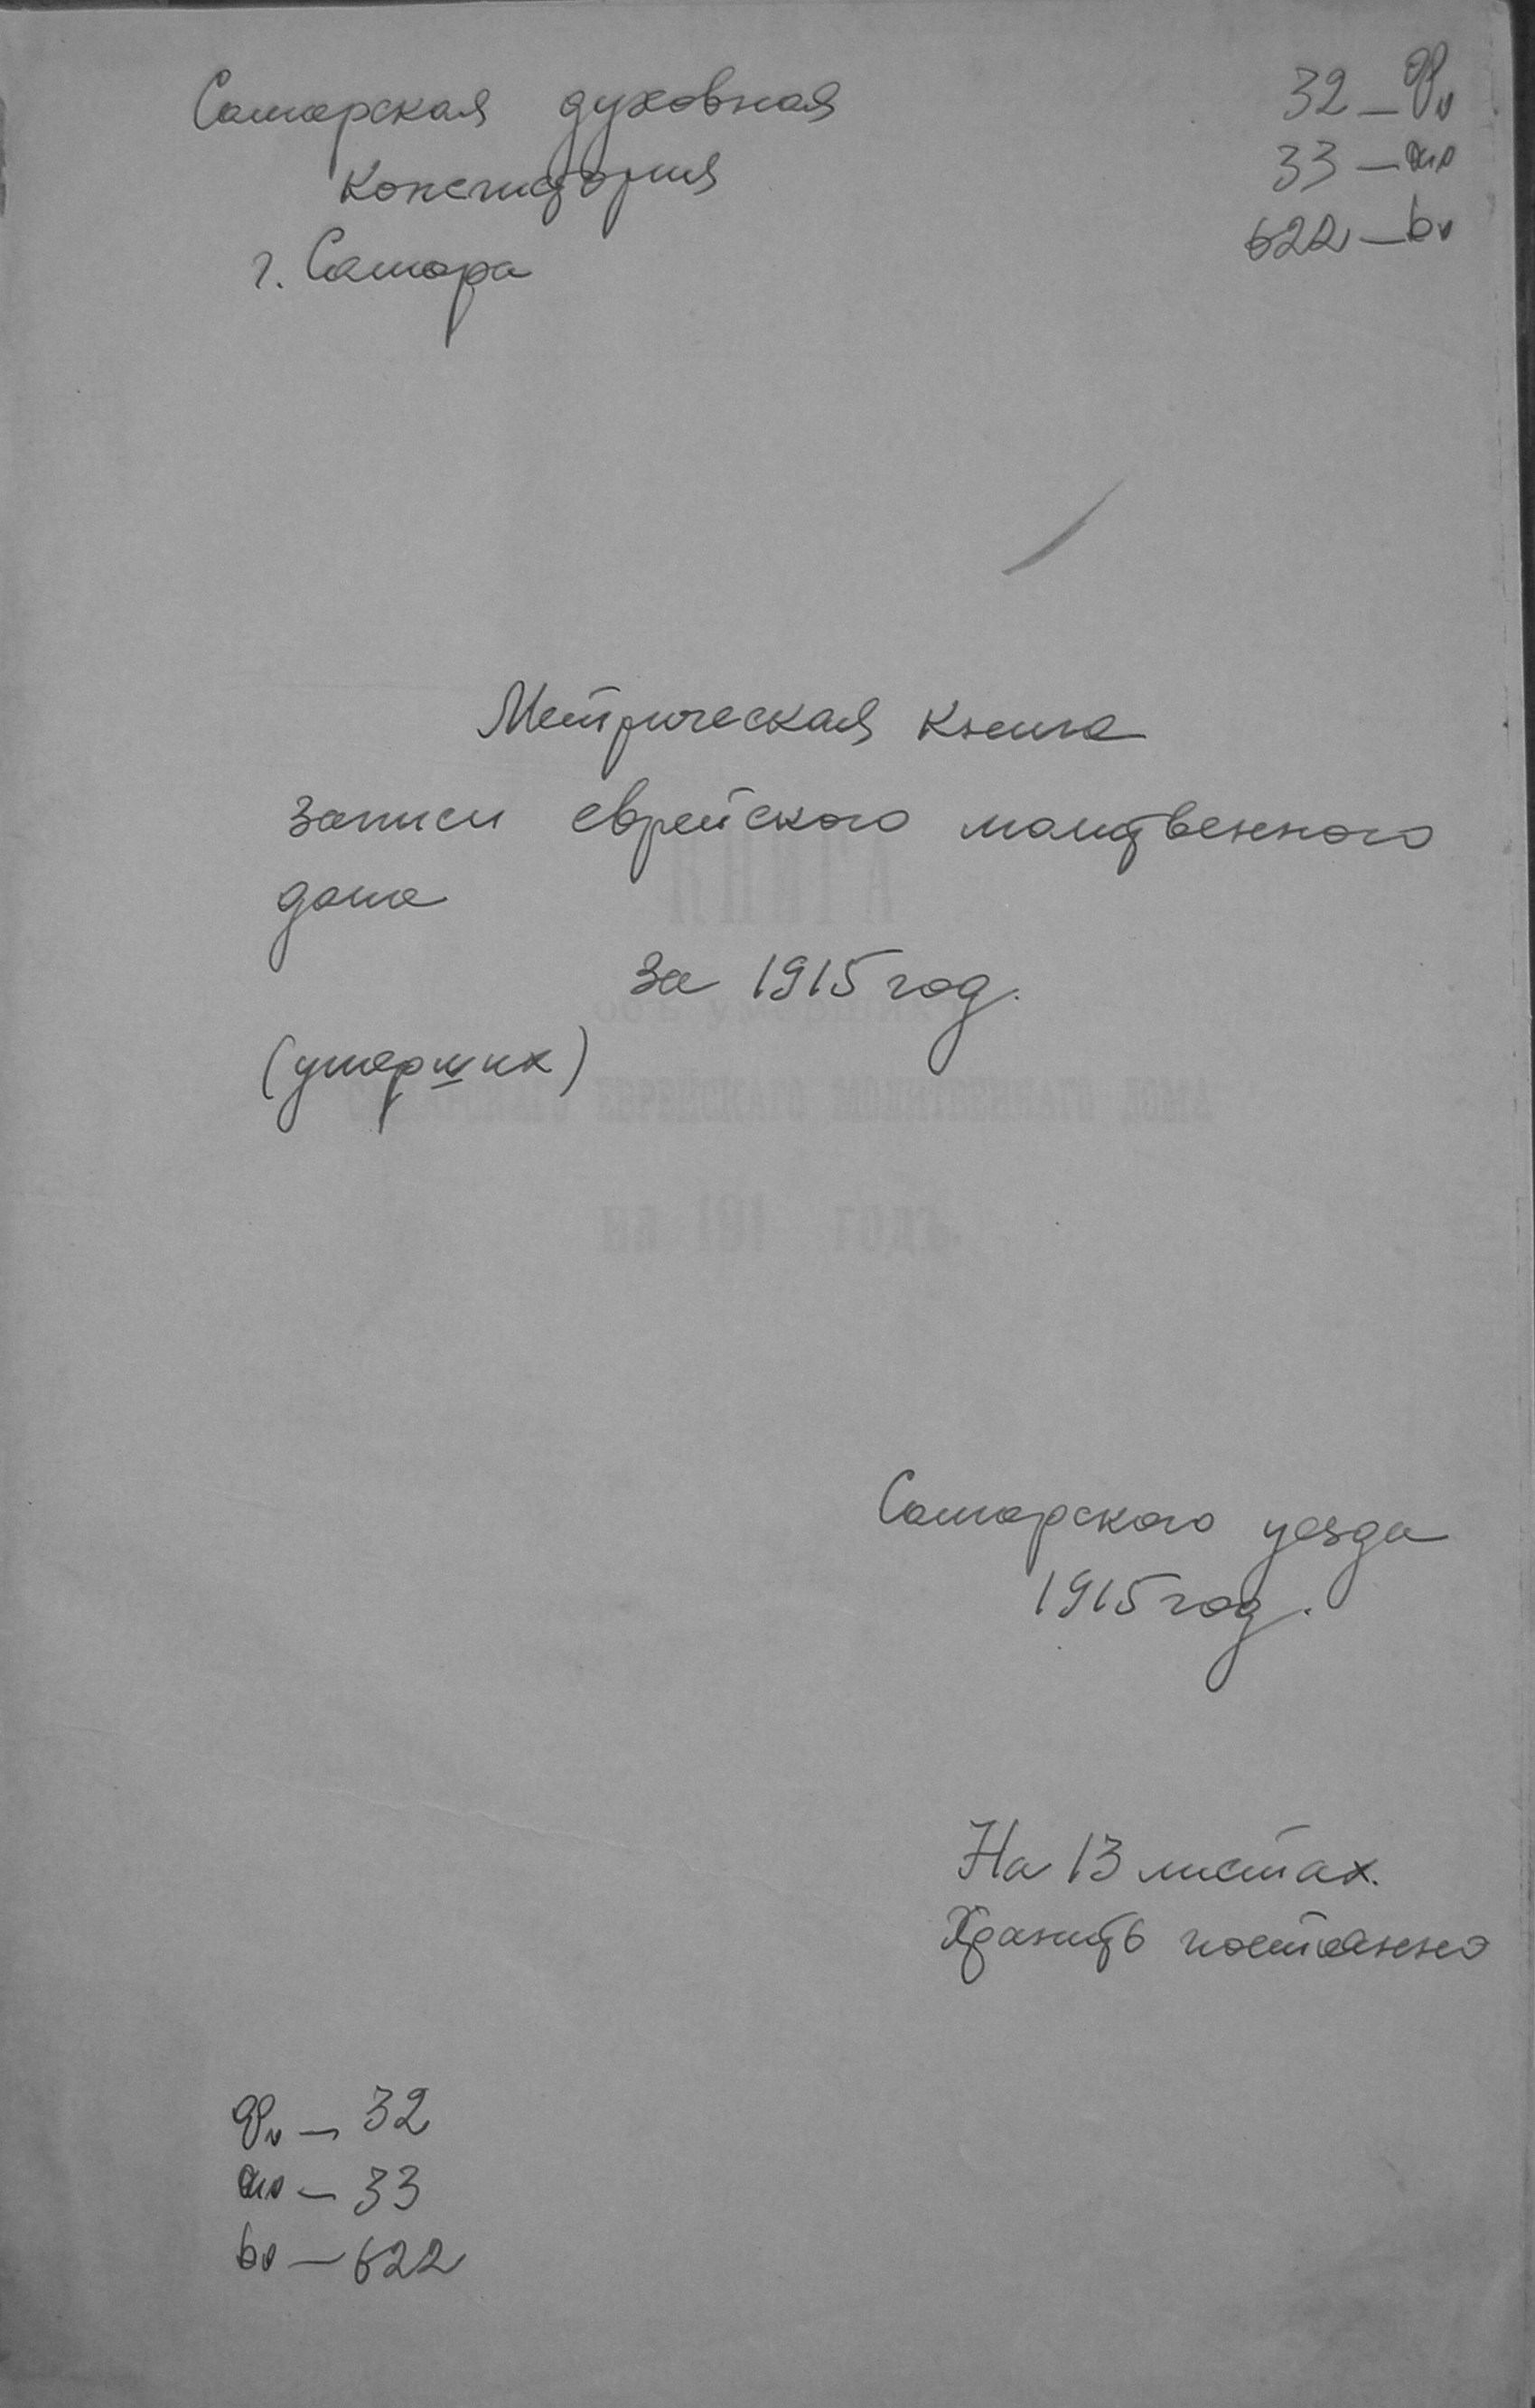 Самарская духовная
консистория
г. Самара
32 – Ф.
33 – оп.
622 – Ед.
Метрическая книга
записи еврейского молитвенного
дома
за 1915 год.
(умерших)
КНИГА
объ умершихъ
САМАРСКАГО ЕВРЕЙСКАГО МОЛИТВЕННАГО ДОМА
на 191 годъ.
Самарского уезда
1915 год.
На 13 листах.
Хранить постоянно
Ф. – 32
оп. – 33
Ед. – 622